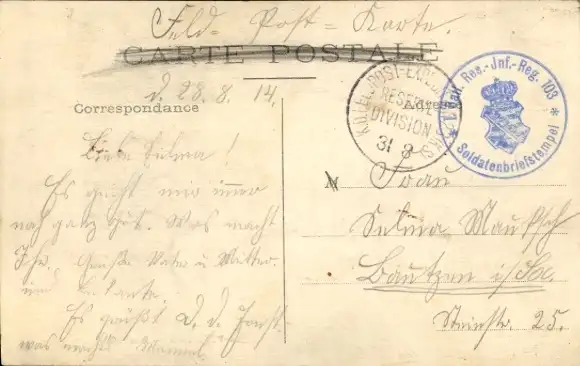 Feld-Post-Karte.
CARTE POSTALE
d. 28. 8. 14.
Correspondance
Adresse
Liebe Selma!
Es geht mir immer
noch ganz gut. Was macht
Ihr. Grüße Vater u. Mutter
und
Es grüßt D. d.
was macht
K.D. FELDPOST-EXPED
RESERVE
DIVISION
31 8
1. Batl. Res.-Jnf.-Reg. 103
* Soldatenbriefstempel *
M
Frau
Selma
Bautzen i/Sa.
Steinstr. 25.